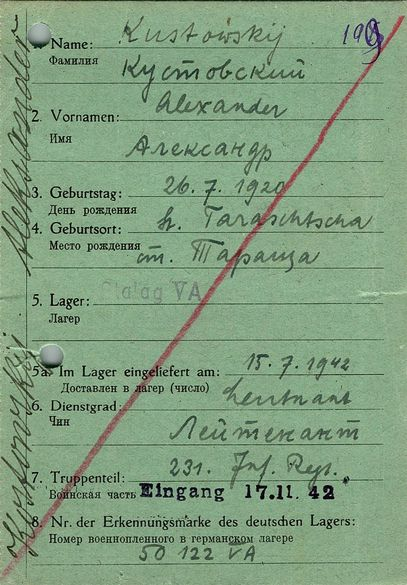 1. Name: Kustowskij
195
Фамилия Кустовский
2. Vornamen: Alexander
Имя Александр
3. Geburtstag: 26. 7. 1920
День рождения
4. Geburtsort: st. Taraschtscha
Место рождения ст. Тараща
5. Lager: Stalag VA
Лагер
5a. Im Lager eingeliefert am: 15. 7. 1942
Доставлен в лагер (число)
6. Dienstgrad: Leutnant
Чин Лейтенант
7. Truppenteil: 231. Inf. Reg.
Воинская часть Eingang 17.11.42
8. Nr. der Erkennungsmarke des deutschen Lagers:
Номер военнопленного в германском лагере
50 122 VA
Alexander